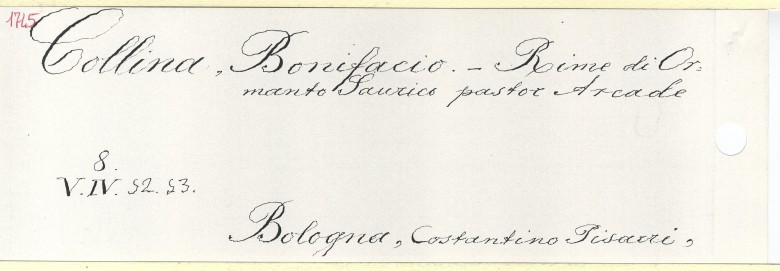 1745
Collina, Bonifacio. - Rime di Or=
manto Saurico pastor Arcade
8.
V. IV. 52. 53.
Bologna, Costantino Pisarri,